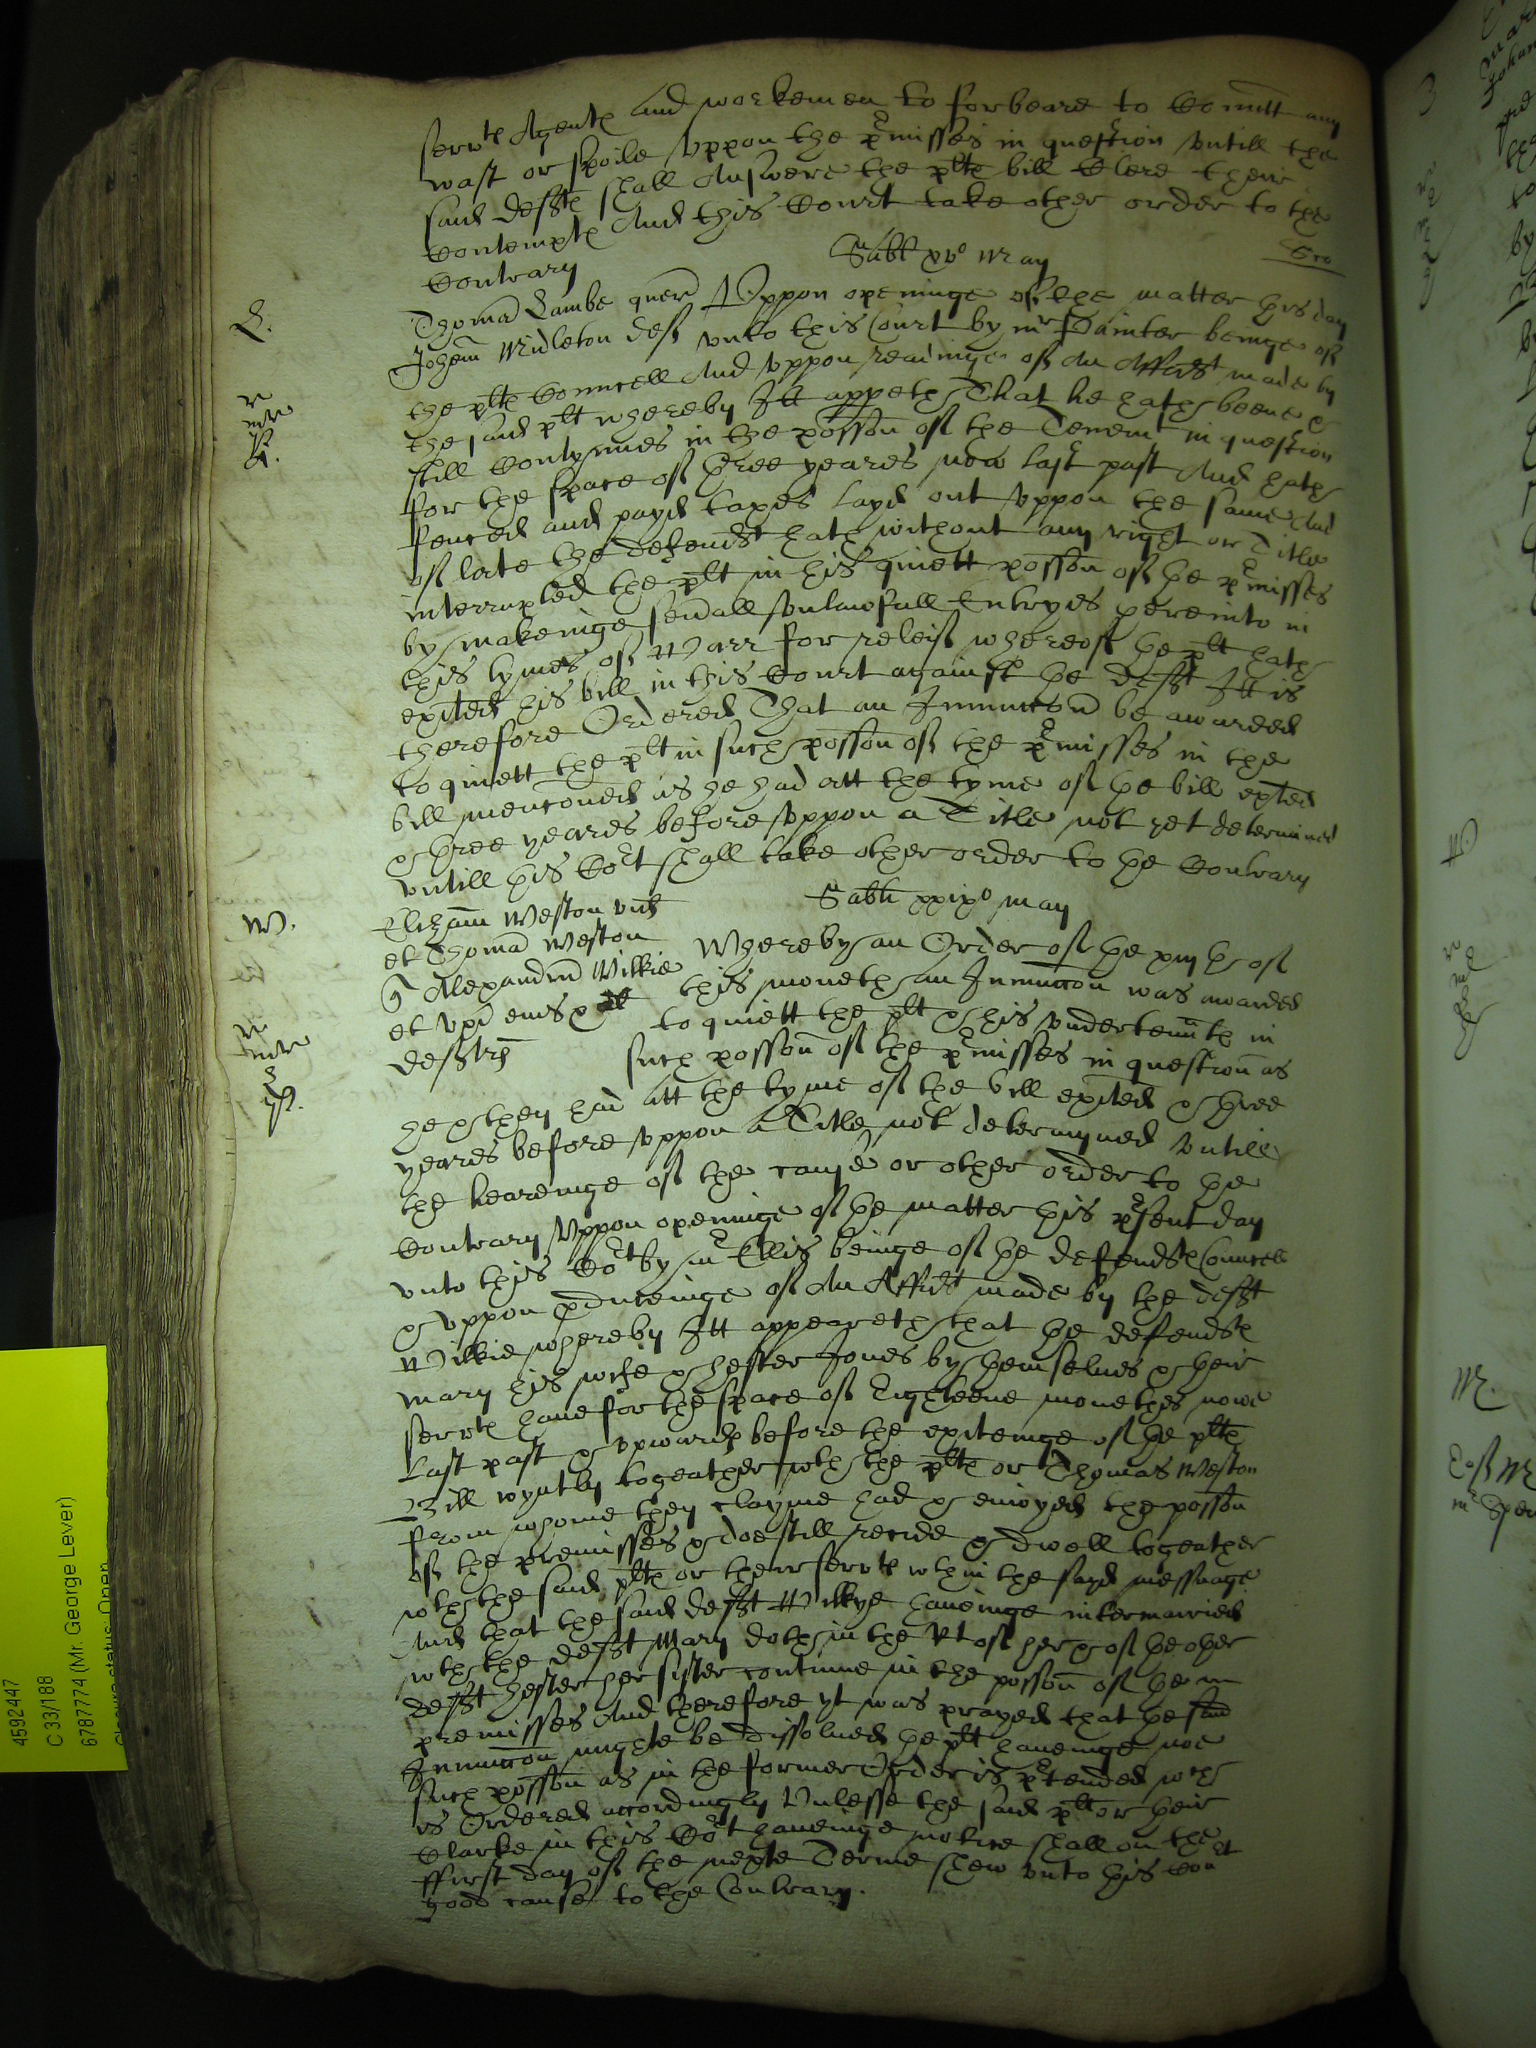 servtes Agentes and workemen to forbeare to Comitt any
wast or spoile uppon the premisses in question untill the
said defts shall Answere the pltes bill Clere their
Contemptes And this Court take other order to the
Contrary
Sabti xv° May
L.
Thomas Lambe quer Uppon openinge of the matter this day
Johem Midleton deft unto this Court by mr Painter beinge of
the pltes Councell And uppon readinge of An Affidt made by
the said plt whereby Itt appeth That he hath beene &
still Contynues in the posson of the Tenemt in question
for the space of three yeares now last past And hath
fenced and payd taxes layd out uppon the same And
of late the defendt hath without any right or Title
interrupted the plt in his quiett posson of the pmisses
by makeinge severall unlawfull Entryes thereinto in
this tymes of Warr for releif whereof the plt hath
exited his bill in this Court against the deft Itt is
therefore Ordered That an Iniunccon be awarded
to quiett the plt in such posson of the pmisses in the
bill menconed as he had att the tyme of the bill exted
& three yeares before uppon a Title not yet determined
untill this Cort shall take other order to the Contrary
Sabti xxix° May
W.
Elizam Weston vid
et Thomas Weston
Whereby an Order of the xiijth of
Alexandrm Wilkie
this moneth an Iniunccon was awarded
et ux eius et al
to quiett the plt & his undertenntes in
deftes
such posson of the pmisses in question as
he & they had att the tyme of the bill exited & three
yeares before uppon a Title not determyned untill
the heareinge of the cause or other order to the
Contrary Uppon openinge of the matter this psent day
unto this Cort by mr Ellis beinge of the defendtes Councell
& uppon pduceinge of An Affidt made by the deft
Wilkie whereby Itt appeareth that the defendtes
Mary his wife & Hester Jones by themselves & their
servtes have for the space of Eighteene monethes nowe
last past & upwardes before the exiteinge of the pltes
Bill ioyntly togeather wth the pltes or Thomas Weston
from whome they clayme had & enioyed the posson
of the premisses & doe still recide & dwell togeather
wth the said pltes or their servtes wthin the sayd messuage
And that the said deft Wilkye haveinge intermarried
wth the deft Mary doth in the Rt of her & of the other
deft Hester her sister continue in the posson of the
premisses And therefore yt was prayed that the said
Iniunccon might be dissolved the plt haveinge noe
such posson as in the former Order is ptended wch
is Ordered accordingly Unlesse the said plt or their
Clarke in this Cort haveinge notice shall on the
ffirst day of the nexte Terme shew unto this Court
good cause to the Contrary.
4592447
C 33/188
6787774 (Mr. George Lever)
Closure status: Open